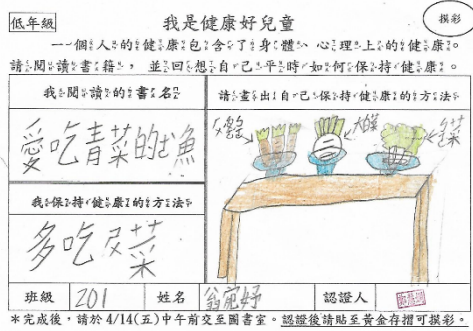 低年級
我是健康好兒童
摸彩
一個人的健康包含了身體、心理上的健康。
請閱讀書籍，並回想自己平時如何保持健康。
我閱讀的書名
愛吃青菜的土魚
請畫出自己保持健康的方法
大白菜
我保持健康的方法
多吃菜
班級
201
姓名
翁宛妤
認證人
＊完成後，請於 4/14(五)中午前交至圖書室。認證後請貼至黃金存摺可摸彩。